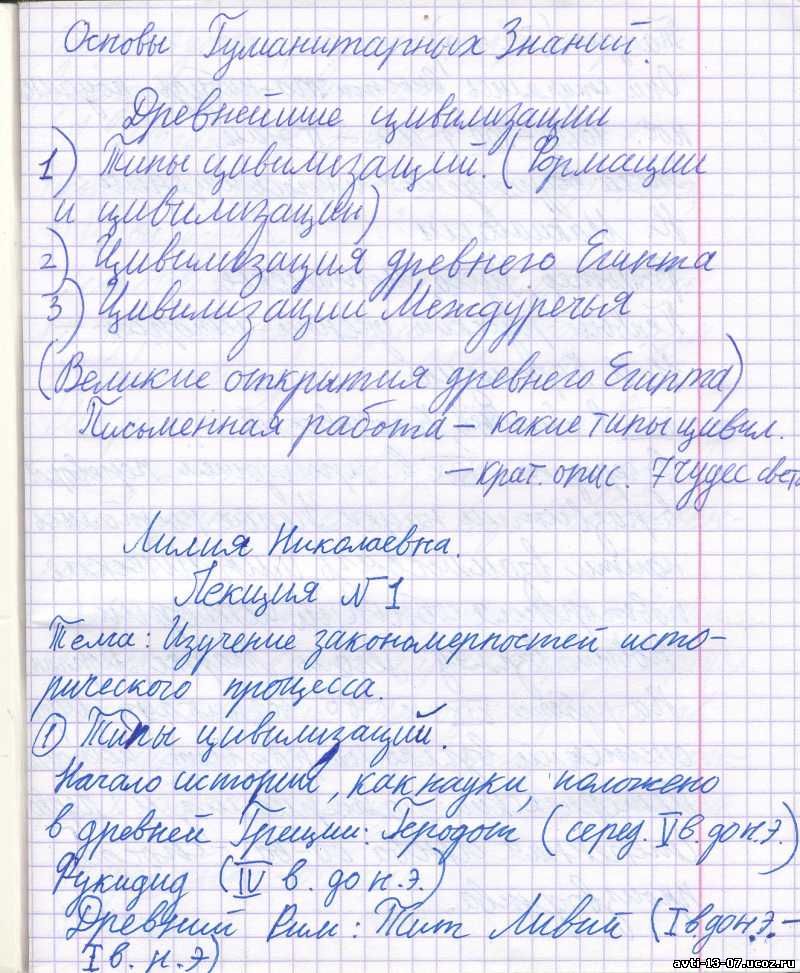 Основы Гуманитарных Знаний.
Древнейшие цивилизации
1) Типы цивилизаций. (Формации
и цивилизации)
2) Цивилизация древнего Египта
3) Цивилизации Междуречья
(Великие открытия древнего Египта)
Письменная работа – какие типы цивил.
– крат. опис. 7 чудес света
Лилия Николаевна.
Лекция №1
Тема: Изучение закономерностей исто-
рического процесса.
① Типы цивилизаций.
Начало истории, как науки, положено
в древней Греции: Геродот (серед. V в. до н.э.)
Фукидид (IV в. до н.э.)
Древний Рим: Тит Ливий (I в до н.э. –
I в. н.э)
avti-13-07.ucoz.ru